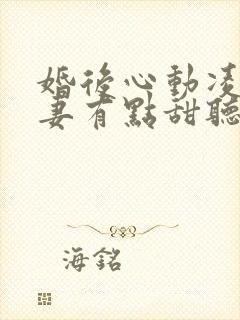 婚後心動凌
妻有點甜聽
海銘